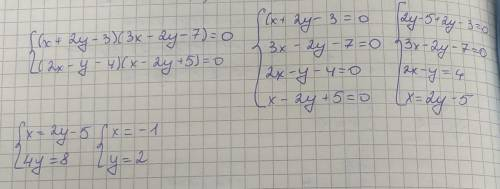 {(x + 2y - 3)(3x - 2y - 7) = 0
(2x - y - 4)(x - 2y + 5) = 0
{(x + 2y - 3 = 0
3x - 2y - 7 = 0
2x - y - 4 = 0
x - 2y + 5 = 0
{2y - 5 + 2y - 3 = 0
3x - 2y - 7 = 0
2x - y = 4
x = 2y - 5
{x = 2y - 5
4y = 8
{x = -1
y = 2